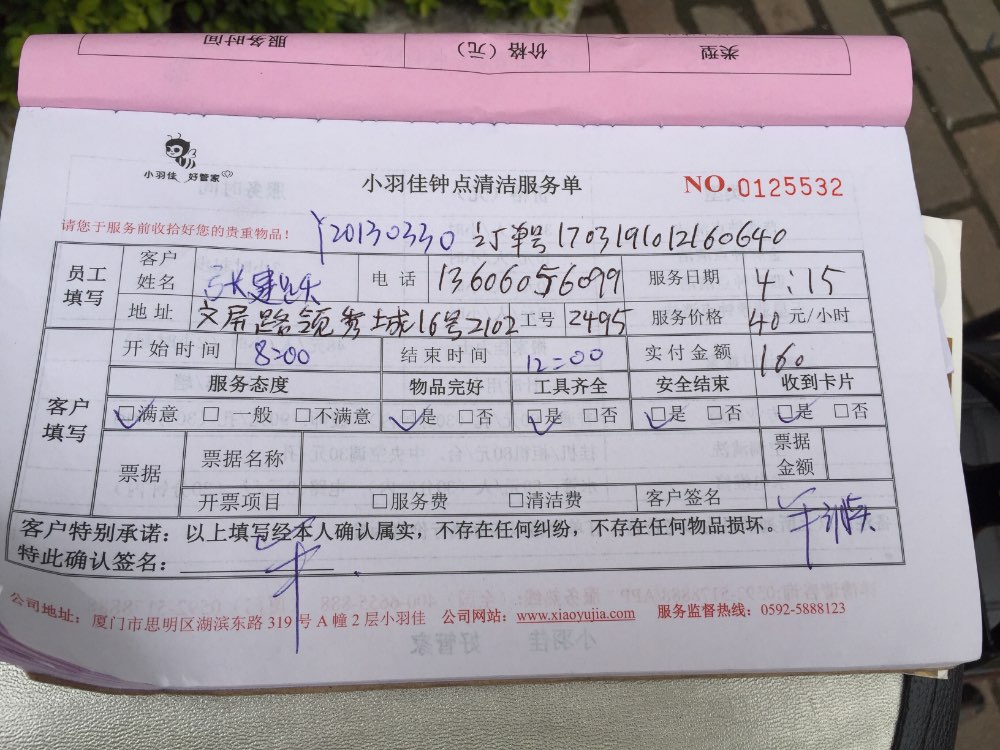 类型 价格（元） 服务时间
小羽佳 好管家
小羽佳钟点清洁服务单
NO.0125532
请您于服务前收拾好您的贵重物品！
Y20130330 订单号 1703191012160640
员工填写 客户姓名 电话 13606056099 服务日期 4:15
地址 文屏路领秀城16号2102 工号 2495 服务价格 40 元/小时
客户填写 开始时间 8:00 结束时间 12:00 实付金额 160
服务态度 物品完好 工具齐全 安全结束 收到卡片
☑满意 □一般 □不满意 ☑是 □否 ☑是 □否 ☑是 □否 ☑是 □否
票据 票据名称 票据金额
开票项目 □服务费 □清洁费 客户签名
客户特别承诺：以上填写经本人确认属实，不存在任何纠纷，不存在任何物品损坏。
特此确认签名：
公司地址：厦门市思明区湖滨东路 319 号 A 幢 2 层小羽佳 公司网站：www.xiaoyujia.com 服务监督热线：0592-5888123